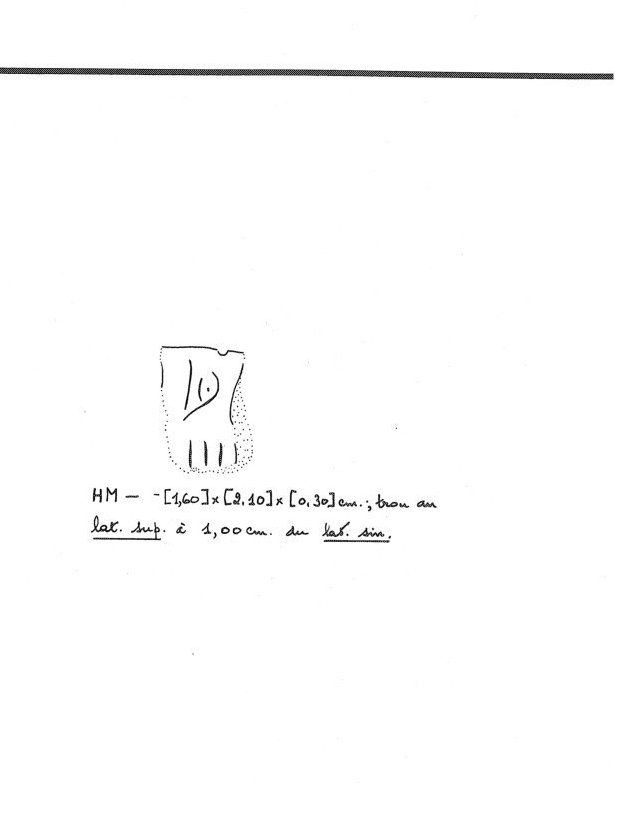 HM — -[1,60]x[2,10]x[0,30]cm.; trou au
lat. sup. à 1,00cm. du lat. sin.